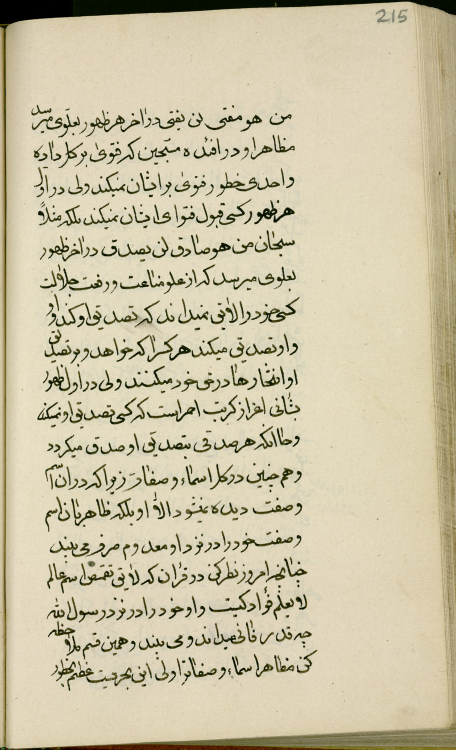 215
من هو مفتی لن یفتی در اخر هر ظهور بعلوی میرسد
مظاهر او در افئده متبحین که فتوی بر کل داده
واحدی خطور فتوی بر ایشان نمیکند ولی در اول
هر ظهور کسی قبول فتوای ایشان نمیکند بلکه مثلاً
سبحان من هو صادق لن یصدق در اخر ظهور
بعلوی میرسد که از علو مناعت و رفعت جلالت
کسی خود را لایق نمیداند که تصدیق او کند او
و او تصدیق میکند هر کسرا که خواهد و بر تصدیق
او افتخارها در حق خود میکنند ولی در اول ظهور
ثانی اعز از کبریت احمر است که کسی تصدیق او نمیکند
و حال انکه هر صدقی بتصدیق او صدق میگردد
و هم چنین در کل اسماء و صفات زیرا که در ان اسم
و صفت دیده نمیشود الا او بلکه ظاهر بان اسم
و صفت خود را در نزد او معدوم صرف می بیند
چنانچه امروز نظر کنی در قران که لایق تقمص اسم عالم
لا یعلم فؤاد کیست و او خود را در نزد رسول الله
چه قدر فانی میداند و می بیند و همین قسم ملاحظه
کن مظاهر اسماء و صفات را ولی این بحریست عظیم